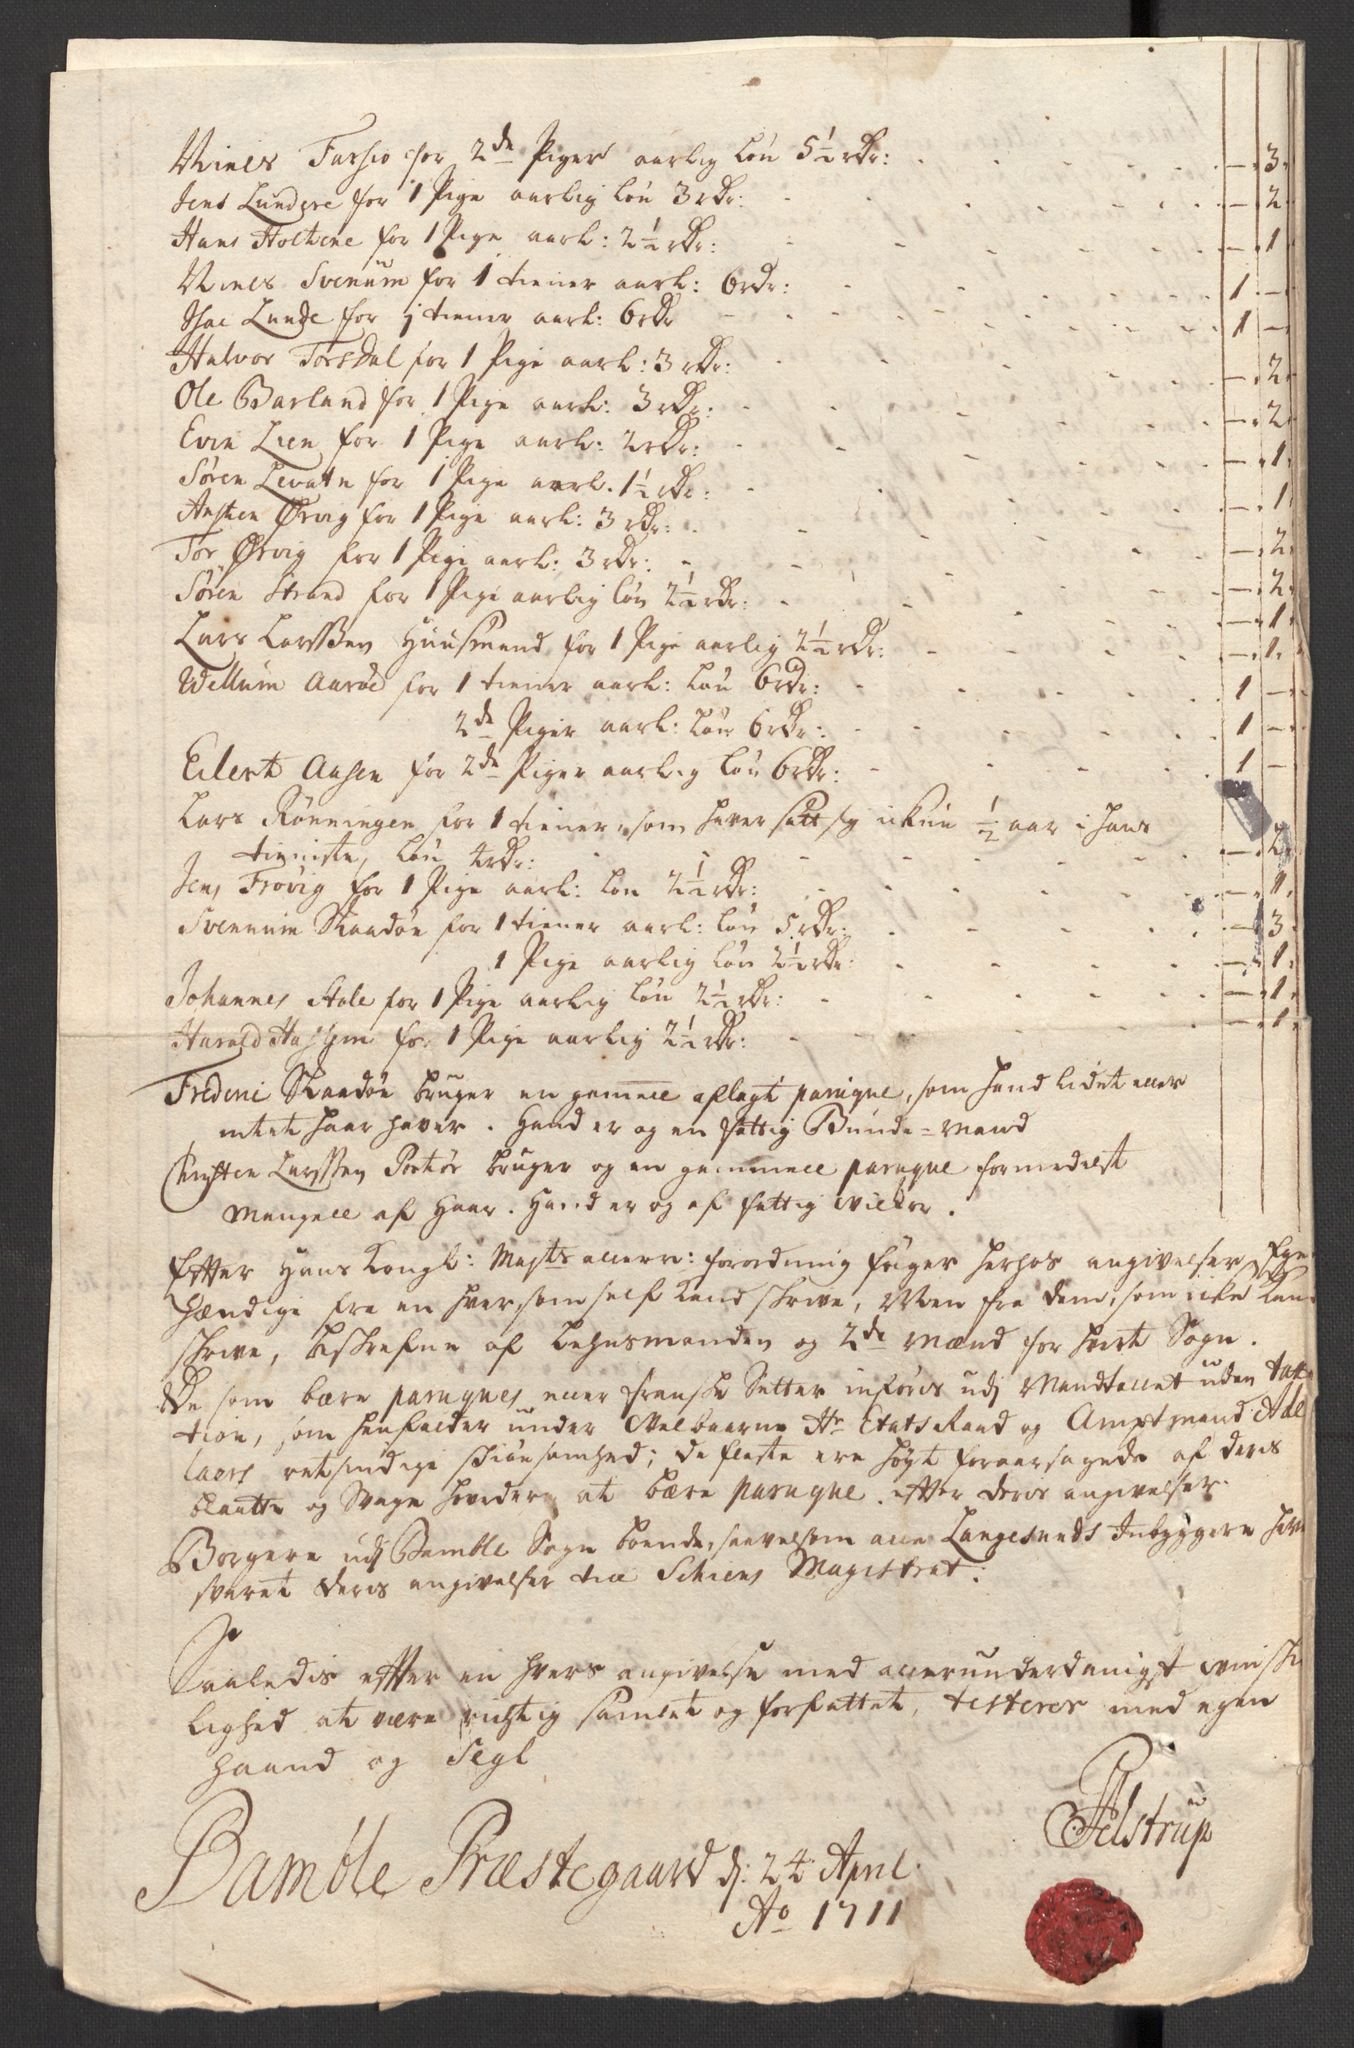 Niels Fossio for 2de Piger aarlig Løn 5½ rdr: — 3
Jens Lundere for 1 Pige aarlig Løn 3 rdr: — 2
Hans Holtene for 1 Pige aarl: 2½ rdr: — 1
Niels Svenum for 1 tiener aarl: 6 rdr: 1 —
Isac Lunde for 1 tiener aarl: 6 rdr 1 —
Halvor Torsdal for 1 Pige aarl: 3 rdr: — 2
Ole Barland for 1 Pige aarl: 3 rdr: — 2
Even Lien for 1 Pige aarl: 2 rdr: — 1
Søren Levatn for 1 Pige aarl. 1½ rdr: — 1
Austen Ørvig for 1 Pige aarl: 3 rdr: — 2
Tor Ørvig for 1 Pige aarl: 3 rdr: — 2
Søren Strand for 1 Pige aarlig løn 2½ rdr: — 1
Lars Larssen Huusmand for 1 Pige aarlig 2½ rdr: — 1
Wellum Aarøe for 1 tiener aarl: Løn 6 rdr: 1 —
2de Piger aarl: Løn 6 rdr: 1 —
Eilert Aasen for 2de Piger aarlig Løn 6 rdr: 1 —
Lars Rønningen for 1 tiener, som haver satt sig ickun ½ aar i hans
tieniste, Løn 4 rdr: — 2
Jens Trovig for 1 Pige aarl: Løn 2½ rdr: — 1
Svennum Skaadøn for 1 tiener aarl: Løn 5 rdr: — 3
1 Pige aarlig Løn 2½ rdr: — 1
Johannes Stole for 1 Pige aarlig Løn 2½ rdr: — 1
Harald for 1 Pige aarlig 2½ rdr: — 1
Frederic Skaadøn bruger en gammell aflagt paruque, som hand lidet eller
intet haar haver. Hand er og en fattig Bunde-Mand
Christen Larssen Portør bruger og en gammell paruque formedelst
Mangell af Haar. Hand er og af fattig vilkor.
Efter Hans Kongl: Majts allern: forordning følger herhos angivelser, Egen
hændige fra en hver, som self kand skrive, Men fra dem, som icke kan
skrive, beskrefne af Lehnsmanden og 2de Mænd for hvert Sogn.
De som bære paruques eller franske Setter inføris udj Mandtallet uden tax
tion, som henfalder under Velbaarne Hr Etats Raad og Amptmand Adel
laers retsindige skiønsomhed; De fleste ere høyt foraarsagede af deris
blaatte og Svage hoveder at bære paruque efter deris angivelser.
Borgere udj Bamble Sogn boende, saavelsom alle Langesunds Indbyggere hav
svaret deris angivelser til Schiens Magistrat:
Saaledis efter en hvers angivelse med allerunderdanigst
lighed at være rigtig samlet og forfattet, testerer med egen
haand og Segl
Pelstrup
Bamble Præstegaard d: 24 April
Ao 1711